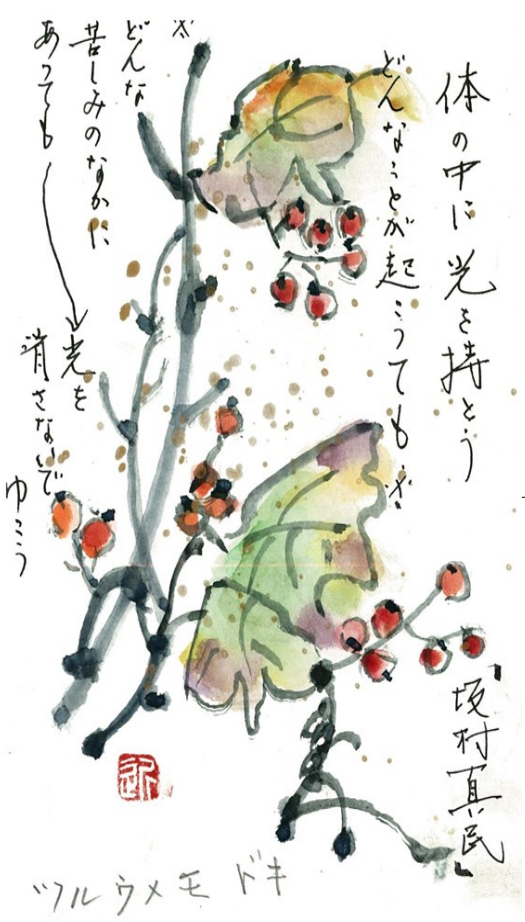 体の中に光を持とう
どんなことが起こっても※
※
どんな
苦しみのなかに
あっても
光を
消さないで
ゆこう
「坂村真民」
ツルウメモドキ